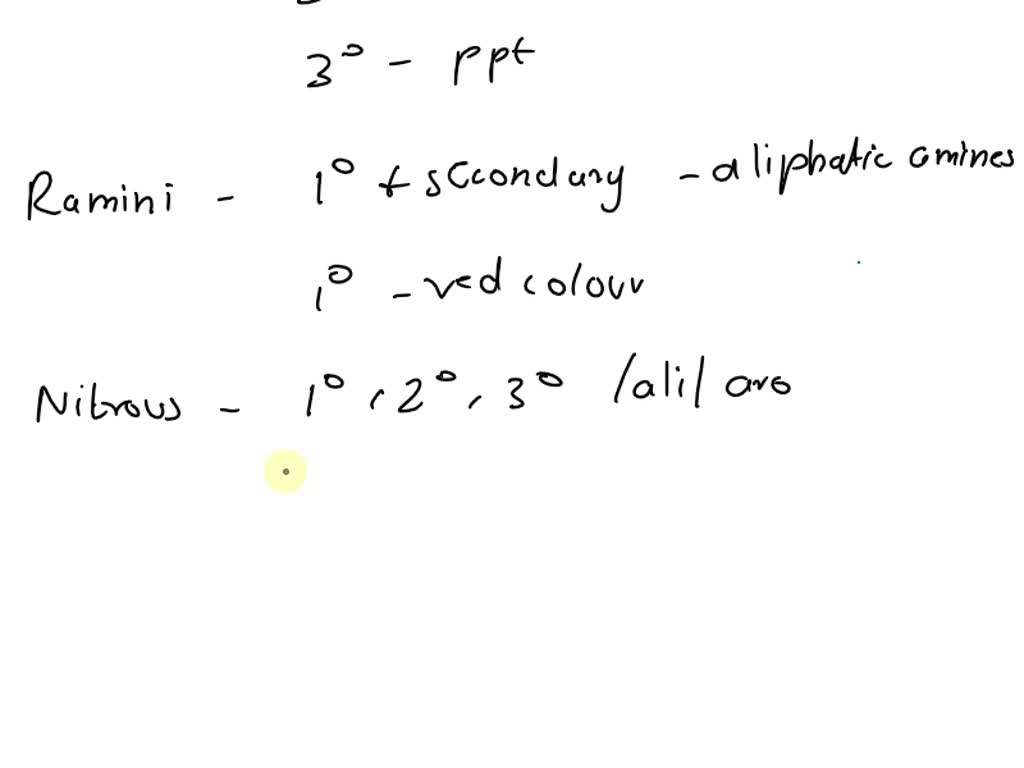 3° - ppt
Ramini - 1° + secondary - aliphatic amines
1° - red colour
Nitrous - 1°, 2°, 3° /ali/ aro